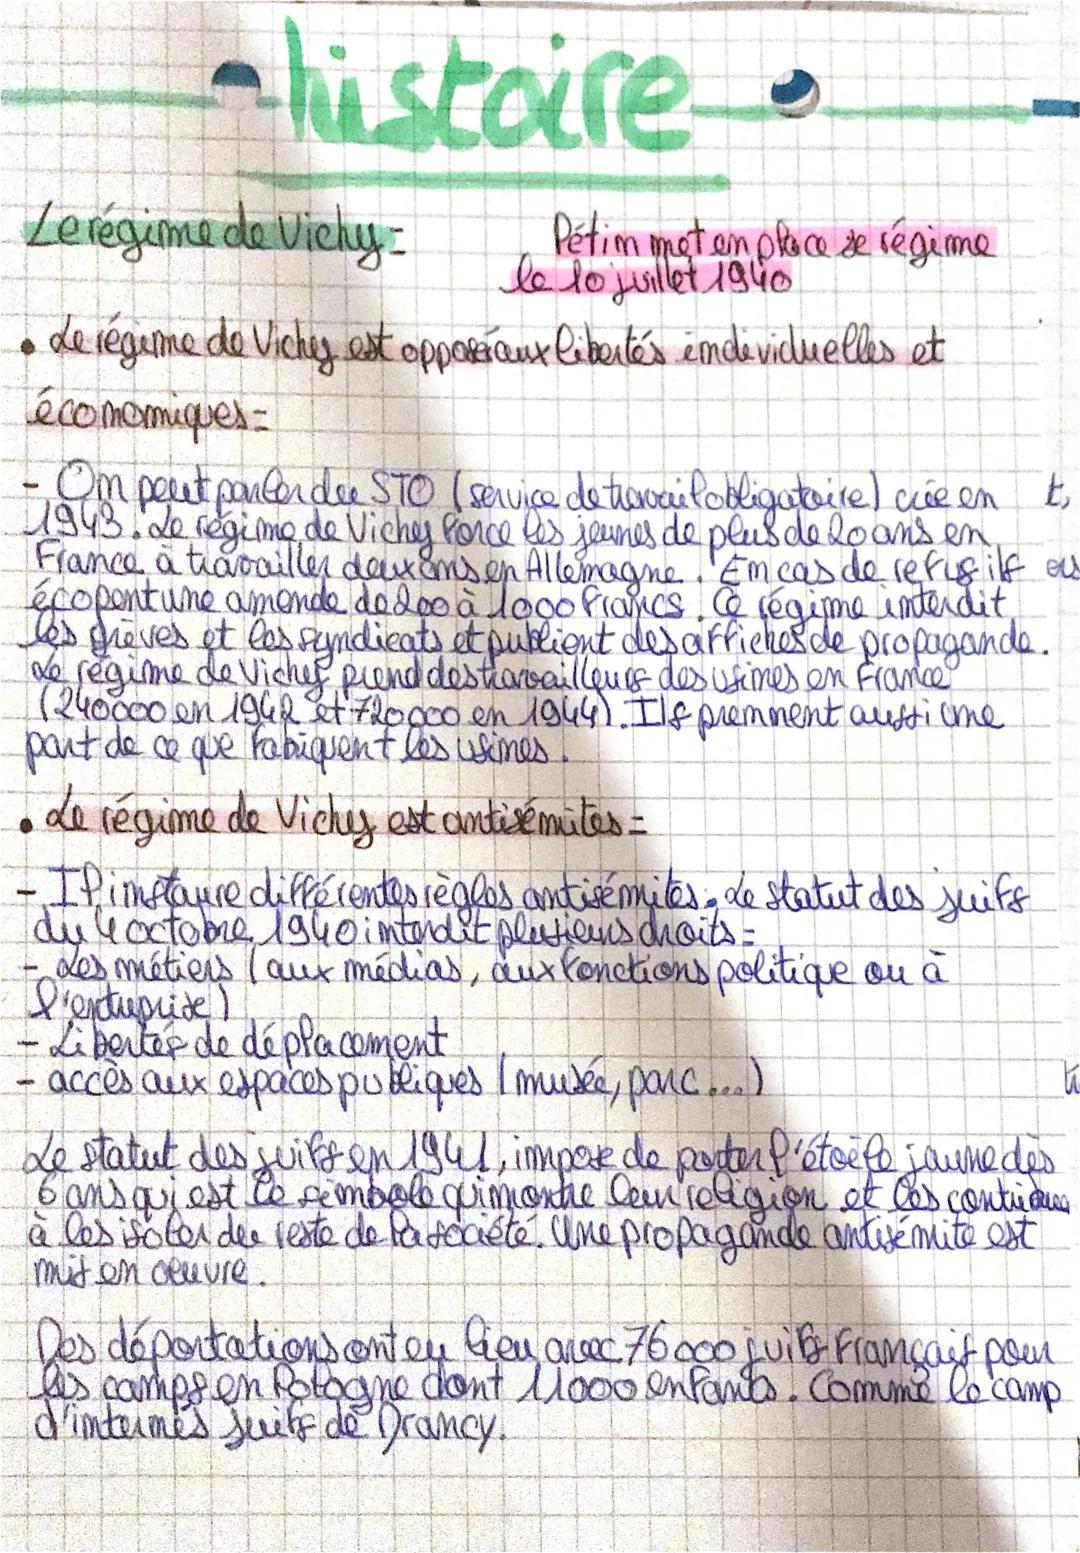 histoire
Le régime de Vichy = Pétim met en place se régime
le 10 juillet 1940
• Le régime de Vichy est opposé aux libertés individuelles et
économiques =
- On peut parler du STO (service de travail obligatoire) crée en t,
1943. Le régime de Vichy force les jeunes de plus de 20 ans en
France à travailler deux ans en Allemagne. En cas de refus ils ers
écopent une amende de 200 à 1000 francs. Ce régime interdit
les grèves et les syndicats et publient des affiches de propagande.
Le régime de Vichy prend des travailleurs des usines en France
(240000 en 1942 et 720000 en 1944). Ils prennent aussi une
part de ce que fabiquent les usines.
• Le régime de Vichy est antisémites =
- Il instaure différentes règles antisémites. Le statut des juifs
du 4 octobre 1940 interdit plusieurs droits =
- Les métiers (aux médias, aux fonctions politique ou à
l'entreprise)
- Libertés de déplacement
- accès aux espaces publiques (musée, parc...)
Le statut des juifs en 1941, impose de porter l'étoile jaune dès
6 ans qui est le simbole qui montre leur religion et les
à les isoler du reste de la société. Une propagande antisémite est
mis en oeuvre.
Des déportations ont eu lieu avec 76 000 juifs Français pour
les camps en Pologne dont 11000 enfants. Comme le camp
d'internés juifs de Drancy.